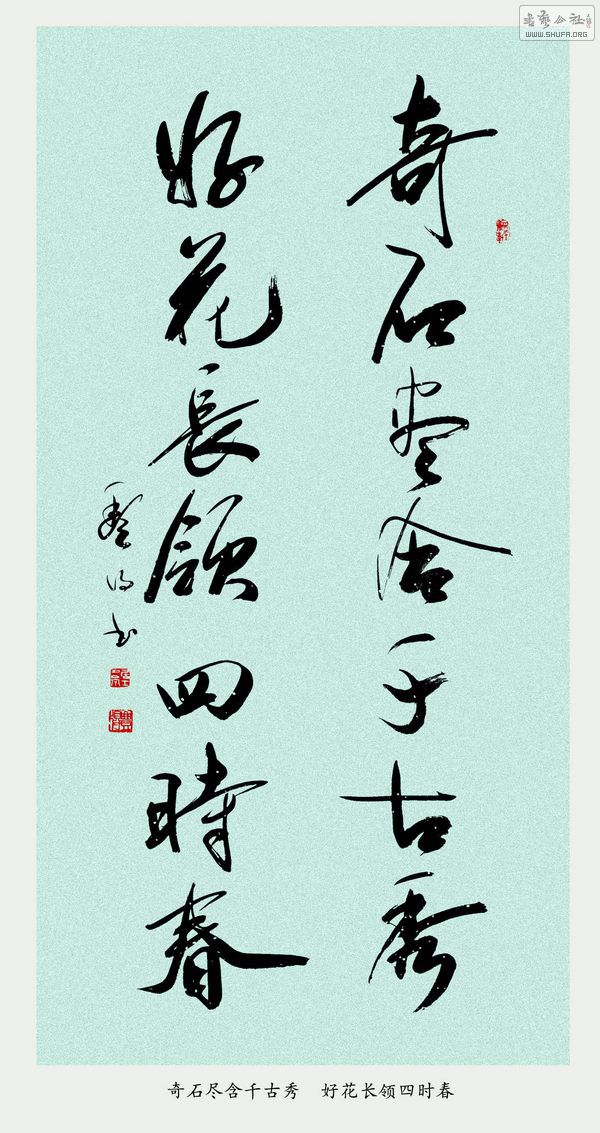 奇石尽含千古秀
好花長領四時春
奇石尽含千古秀 好花长领四时春
书艺公社
WWW.SHUFA.ORG